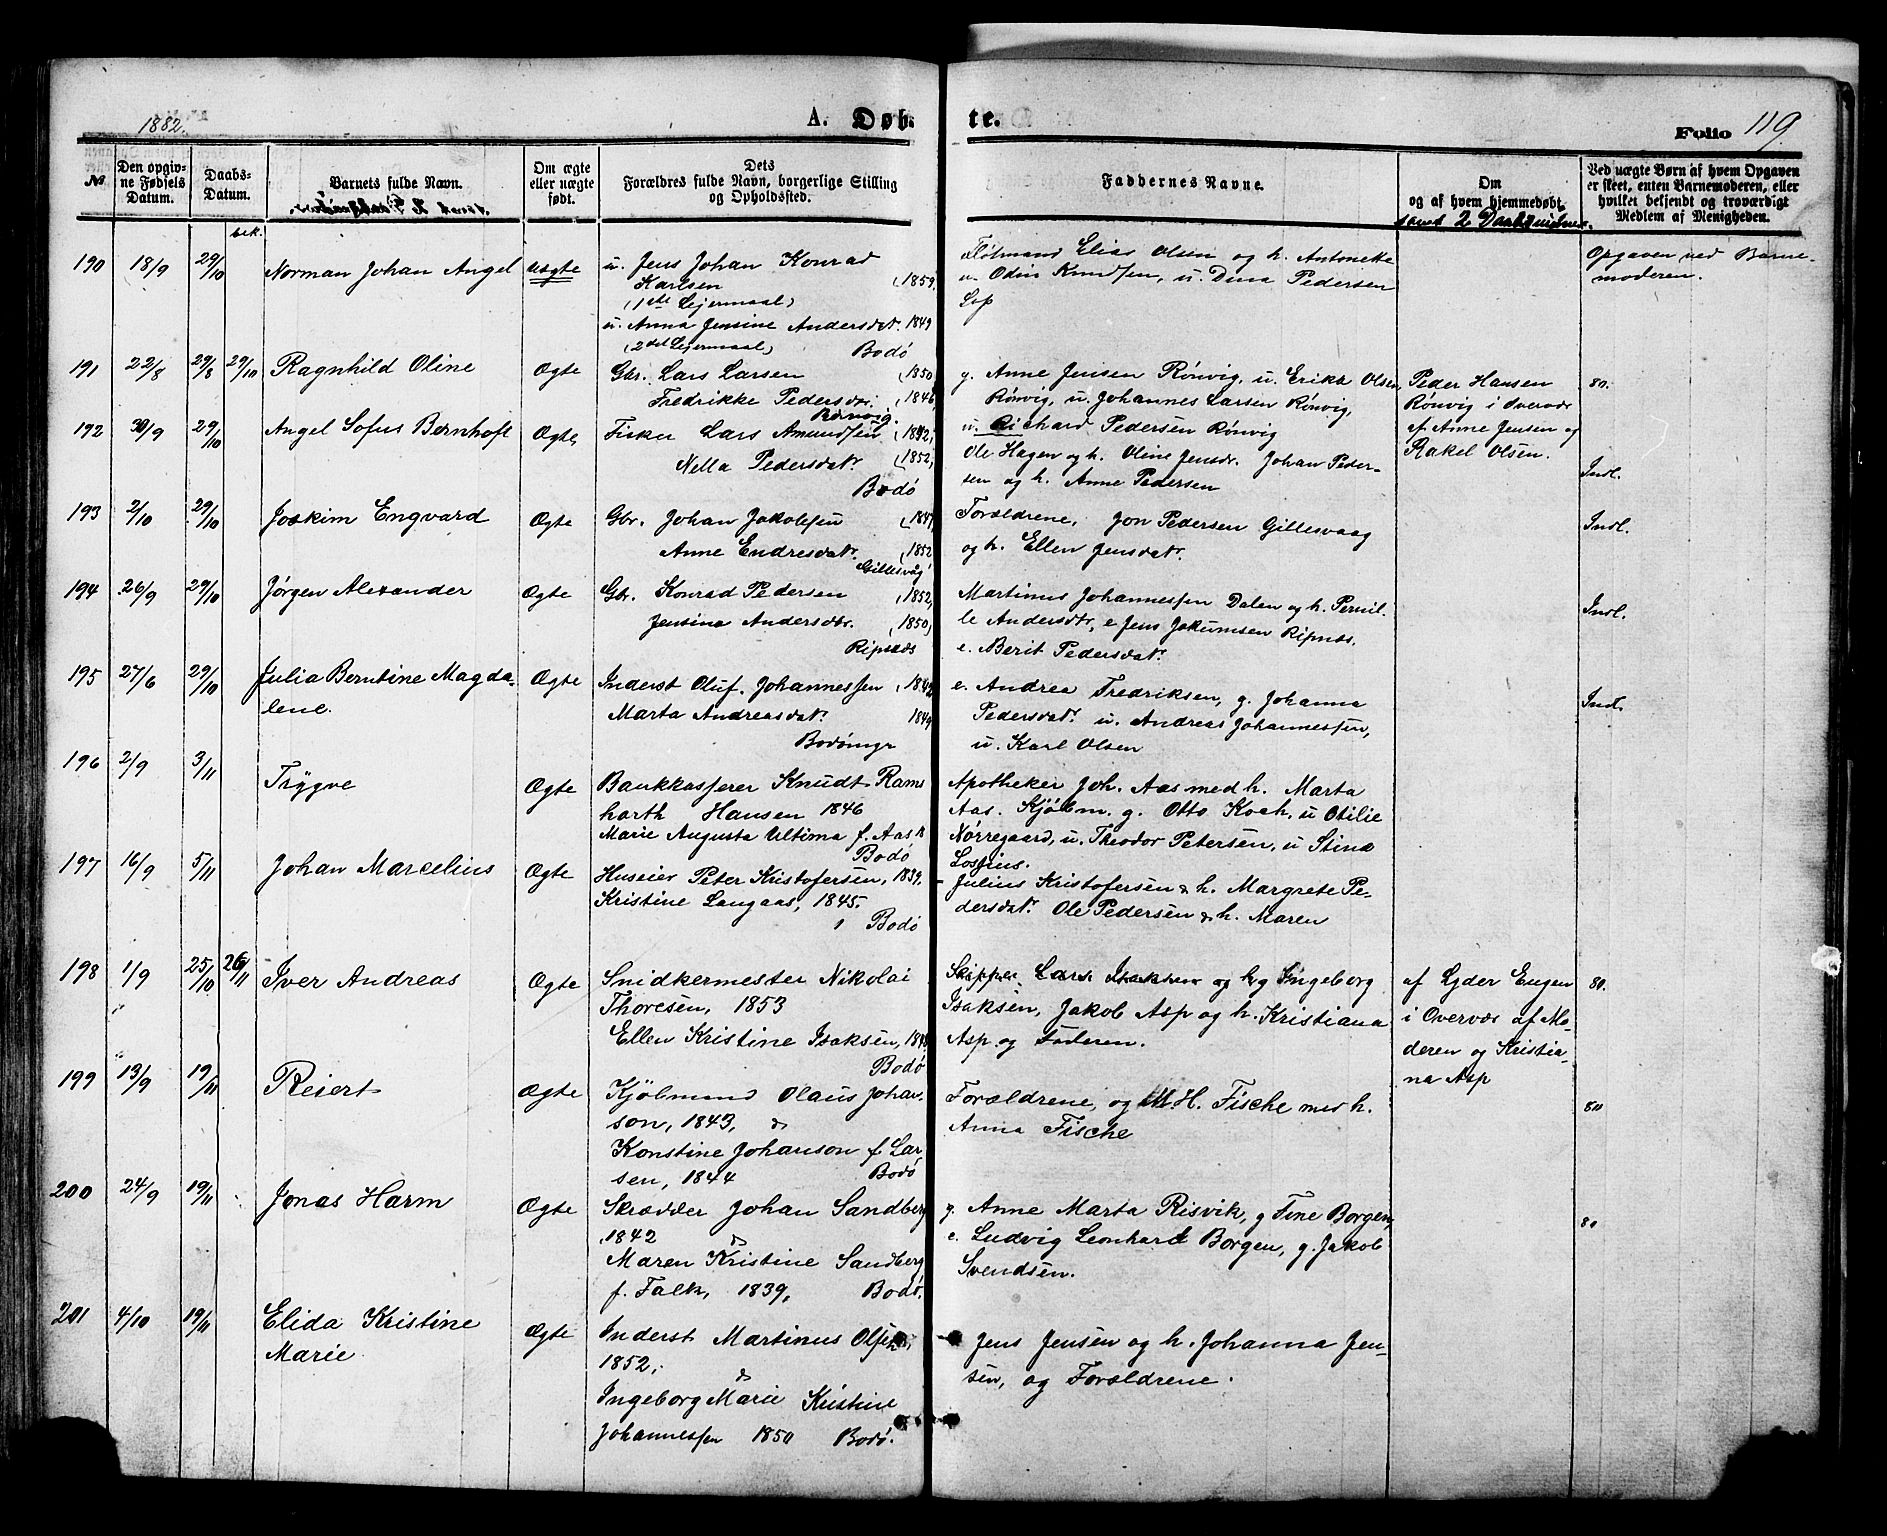 1882.
A. Døb-
te.
Folio 119
№
Den opgiv-
ne Fødsels
Datum.
Daabs-
Datum.
Barnets fulde Navn.
Om ægte
eller uægte
født.
Dets
Forældres fulde Navn, borgerlige Stilling
og Opholdsted.
Faddernes Navne.
Om
og af hvem hjemmedøbt.
samt 2 Daabsvidner.
Ved uægte Børn af hvem Opgaven
er skeet, enten Barnemoderen, eller
hvilket bekjendt og troværdigt
Medlem af Menigheden.
bek.
190 18/9 29/10 Norman Johan Angel uægte
u. Jens Johan Konrad
Karlsen 1859,
(1ste Lejermaal)
u. Anna Jensine Andersdat. 1849
(2det Lejermaal) Bodø
Fløtmand Elias Olsen og h. Antonette
u. Odin Knudsen, u. Dina Pedersen
Løp
Opgaven ved Barne-
moderen.
191 22/8 29/8 29/10 Ragnhild Oline Ægte
Gbr. Lars Larsen 1850
Fredrikke Pedersdtr. 1846,
Rønvig.
g. Anne Jensen Rønvig, u. Erika Olsen
Rønvig, u. Johannes Larsen Rønvig,
u. Richard Pedersen Rønvig
Peder Hansen
Rønvig i Overvær
af Anne Jensen og
Rakel Olsen.
80.
192 30/9 29/10 Angel Sofus Bernhoft Ægte,
Fisker Lars Amundsen 1842,
Nella Pedersdatr. 1852,
Bodø
Ole Hagen og h. Oline Jensdr. Johan Peder-
sen og h. Anne Pedersen
Indl.
193 2/10 29/10 Joakim Engvard Ægte
Gbr. Johan Jakobsen 1847,
Anne Endresdatr. 1852
Gillesvåg
Forældrene, Jon Pedersen Gillesvaag
og h. Ellen Jensdatr.
Indl.
194 26/9 29/10 Jørgen Alexander Ægte
Gbr. Konrad Pedersen 1852,
Jensina Andersdtr. 1850,
Ripnæs
Martinus Johannessen Dalen og h. Pernil-
le Andersdtr, e Jens Jakumsen Ripnæs.
e. Berit Pedersdatr.
Indl.
195 27/6 29/10 Julia Berntine Magda-
lene.
Ægte
Inderst Oluf Johannessen 1842
Marta Andreasdatr. 1849
Bodømyr
e. Andrea Fredriksen, g. Johanna
Pedersdatr. u. Andreas Johannessen,
u. Karl Olsen
Indl.
196 2/9 3/11 Trygve Ægte
Bankkasserer Knudt Ram-
harth Hansen 1846
Marie Augusta Ultima f. Aas
Bodø
Apotheker Joh. Aas med h. Marta
Aas. Kjøbm. g. Otto Koch, u Otilie
Nørregaard, u. Theodor Petersen, u Stina
Lossius.
197 16/9 5/11 Johan Marcelius Ægte
Huseier Peter Kristofersen, 1839,
Kristine Langaas, 1845.
Bodø
Julius Kristofersen & h. Margrete Pe-
dersdatr. Ole Pedersen & h. Maren
198 1/9 25/10 26/11 Iver Andreas Ægte
Snidkermester Nikolai
Thoresen, 1853
Ellen Kristine Isaksen,
Bodø
Skipper Lars Isaksen og hg Ingeborg
Isaksen, Jakob Asp og h. Kristiana
Asp og Faderen.
af Lyder Eugen
i Overvær af Mo-
deren og Kristia-
na Asp
80.
199 13/9 19/11 Reiert Ægte
Kjøbmand Olaus Johan-
son, 1843, &
Konstine Johanson f. Lar-
sen, 1844 Bodø
Forældrene, og M. H. Fische med h.
Anna Fische
80
200 24/9 19/11 Jonas Harm Ægte
Skrædder Johan Sandberg
1842 &
Maren Kristine Sandberg
f. Falk, 1839, Bodø.
g. Anne Marta Risvik, g Fine Borgen,
e. Ludvig Leonhard Borgen, g. Jakob
Svendsen.
80
201 4/10 19/11 Elida Kristine
Marie
Ægte
Inderst Martinus Olsen,
1852, &
Ingeborg Marie Kristine
Johannessen 1850 Bodø.
Jens Jensen og h. Johanna Jen-
sen, og Forældrene.